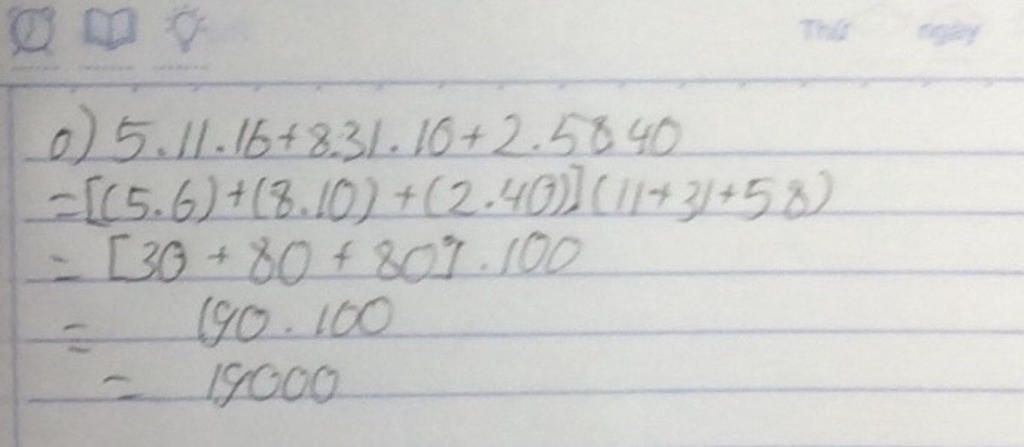 Thứ ngày
a) 5.11.16+8.31.10+2.58 40
=[(5.6)+(8.10)+(2.40)](11+31+58)
= [30 + 80 + 80].100
= 190.100
= 19000